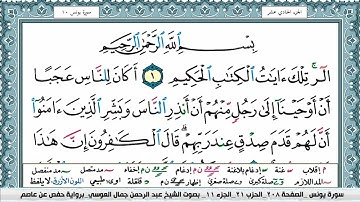 الجزء الحادي عشر
سورة يونس ١٠
بِسْمِ ٱللَّهِ ٱلرَّحْمَٰنِ ٱلرَّحِيمِ
الٓر ۚ تِلْكَ ءَايَٰتُ ٱلْكِتَٰبِ ٱلْحَكِيمِ ١ أَكَانَ لِلنَّاسِ عَجَبًا
أَنْ أَوْحَيْنَآ إِلَىٰ رَجُلٍ مِّنْهُمْ أَنْ أَنذِرِ ٱلنَّاسَ وَبَشِّرِ ٱلَّذِينَ ءَامَنُوٓا۟
أَنَّ لَهُمْ قَدَمَ صِدْقٍ عِندَ رَبِّهِمْ ۗ قَالَ ٱلْكَٰفِرُونَ إِنَّ هَٰذَا
سورة يونس، الصفحة ٢٠٨، الحزب ٢١، الجزء ١١، بصوت الشيخ عبد الرحمن جمال العوسي، برواية حفص عن عاصم